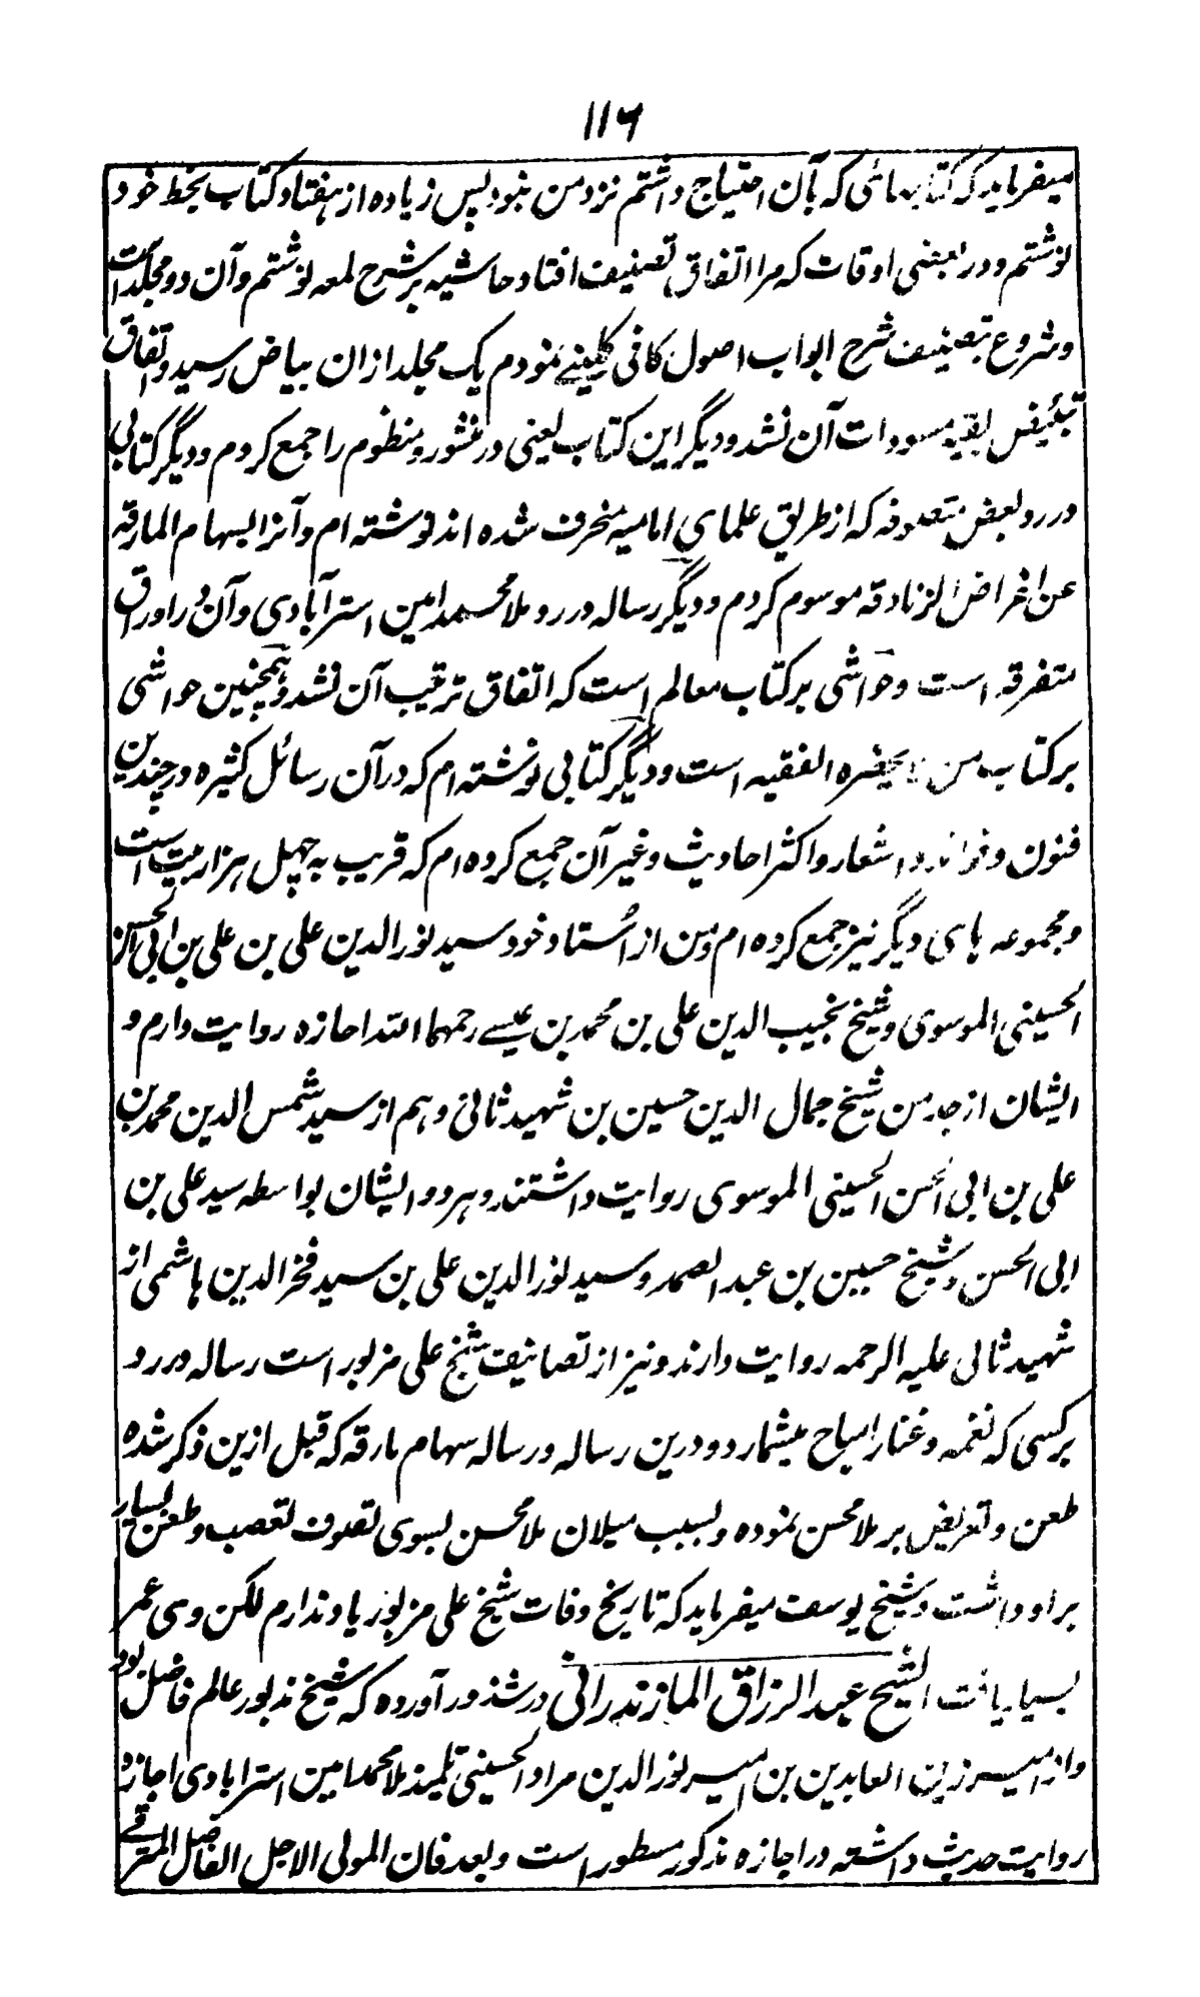 ۱۱۶
میفرماید که کتابهائی که بآن احتیاج داشتم نزد من نبود پس زیاده از هفتاد کتاب بخط خود
نوشتم و در بعضی اوقات که مرا اتفاق تصنیف افتاد حاشیه بر شرح لمعه نوشتم و آن دو مجلد است
و شروع بتصنیف شرح ابواب اصول کافی کلینے نمودم یک مجلد ازان ببیاض رسید و اتفاق
تبئیض بقیه مسودات آن نشد و دیگر این کتاب یعنی در منثور و منظوم را جمع کردم و دیگر کتابی
در رد بعض متصوفه که از طریق علمای امامیه منحرف شده اند نوشته ام و آنرا بسهام المارقه
عن اغراض الزنادقه موسوم کردم و دیگر رساله در رد ملا محمد امین استرآبادی و آن در اوراق
متفرقه است و حواشی بر کتاب معالم است که اتفاق ترتیب آن نشد و همچنین حواشی
بر کتاب من لا یحضره الفقیه است و دیگر کتابی نوشته ام که در آن رسائل کثیره در چندین
فنون و فوائد و اشعار و اکثر احادیث و غیر آن جمع کرده ام که قریب به چهل هزار بیت است
و مجموعه های دیگر نیز جمع کرده ام و من از اُستاد خود سید نور الدین علی بن علی بن ابی الحسن
الحسینی الموسوی و شیخ نجیب الدین علی بن محمد بن عیسے رحمهما الله اجازه روایت دارم و
ایشان از جد من شیخ جمال الدین حسین بن شهید ثانی و هم از سید شمس الدین محمد بن
علی بن ابی الحسن الحسینی الموسوی روایت داشتند و هر دو ایشان بواسطه سید علی بن
ابی الحسن و شیخ حسین بن عبد الصمد و سید نور الدین علی بن سید فخر الدین هاشمی از
شهید ثانی علیه الرحمه روایت دارند و نیز از تصانیف شیخ علی مزبور است رساله در رد
بر کسی که نغمه و غنا را مباح میشمارد و درین رساله و رساله سهام مارقه که قبل ازین ذکر شده
طعن و تعریض بر ملا محسن نموده و بسبب میلان ملا محسن بسوی تصوف تعصب و طعن بسیار
بر او داشت و شیخ یوسف میفرماید که تاریخ وفات شیخ علی مزبور یاد ندارم لکن وی عمر
بسیار یافت الشیخ عبد الرزاق المازندرانی در شذور آورده که شیخ مذبور عالم فاضل بود
و از امیر زین العابدین بن امیر نور الدین مراد الحسینی تلمیذ ملا محمد امین استرابادی اجازه
روایت حدیث داشته در اجازه مذکور مسطور است و بعد فان المولی الاجل الفاضل المترقے